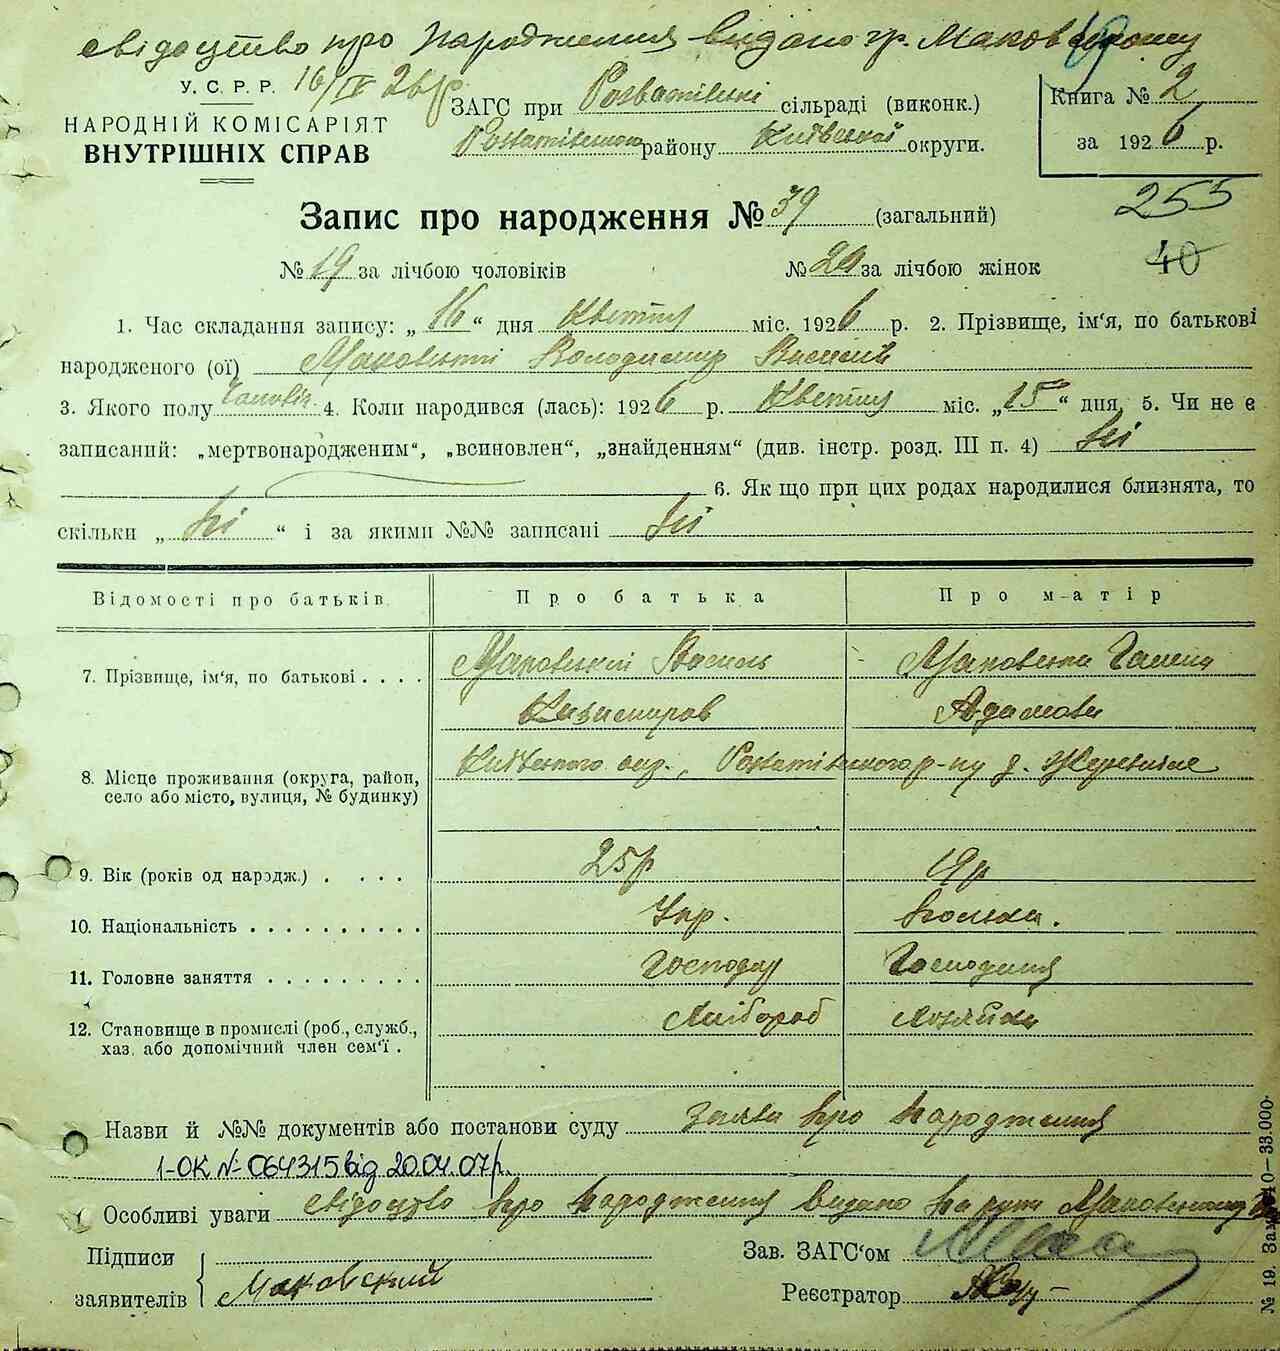 свідоцтво про народження видано гр. Маковському
У. С. Р. Р. 16/IV 26 р
НАРОДНІЙ КОМІСАРІЯТ
ВНУТРІШНІХ СПРАВ
ЗАГС при сільраді (виконк.)
району Київської округи.
Книга № 2
за 1926 р.
255
40
Запис про народження № 39 (загальний)
№ 19 за лічбою чоловіків № 20 за лічбою жінок
1. Час складання запису: „ 16 “ дня Квітня міс. 1926 р. 2. Прізвище, ім'я, по батькові
народженого (ої) Маковський Володимир Василів
3. Якого полу чоловіч. 4. Коли народився (лась): 1926 р. Квітня міс. „ 15 “ дня, 5. Чи не є
записаний: „мертвонародженим“, „всиновлен“, „знайденням“ (див. інстр. розд. III п. 4) Ні
6. Як що при цих родах народилися близнята, то
скільки „ Ні “ і за якими №№ записані Ні
Відомості про батьків Про батька Про матір
7. Прізвище, ім'я, по батькові . . . . Маковський Василь Маковська Галина
Казимиров Адамова
8. Місце проживання (округа, район,
село або місто, вулиця, № будинку)
Київського окр., р-ну д.
9. Вік (років од народж.) . . . . 25 р 19 р
10. Національність . . . . . . . . . . Укр. Полька.
11. Головне заняття . . . . . . . . . Господар Господиня
12. Становище в промислі (роб., служб.,
хаз. або допомічний член сем'ї . Хлібороб Хозяйка
Назви й №№ документів або постанови суду Заява про народження
1-ОК № 064315 від 20.04.07р.
Особливі уваги свідоцтво про народження видано на руки Маковському
Підписи
заявителів Маковский
Зав. ЗАГС'ом
Реєстратор
№ 19. Зам. 10—33.000.